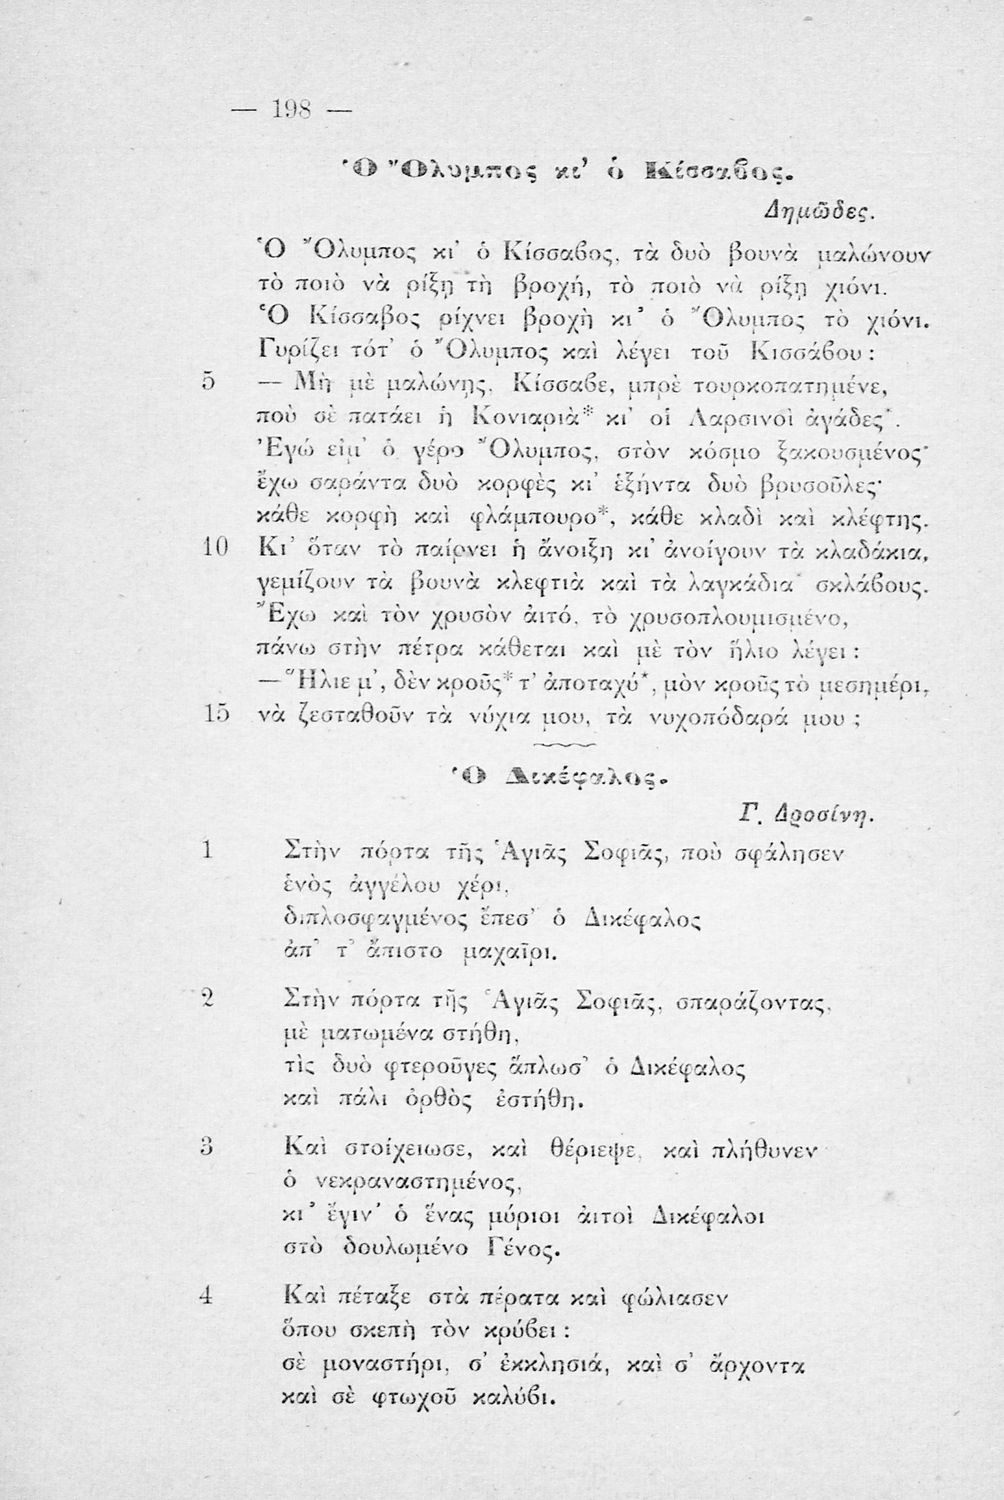 — 198 —
Ὁ Ὄλυμπος κι’ ὁ Κίσσαβος.
Δημῶδες.
Ὁ Ὄλυμπος κι’ ὁ Κίσσαβος, τὰ δυὸ βουνὰ μαλώνουν
τὸ ποιὸ νὰ ρίξῃ τὴ βροχή, τὸ ποιὸ νὰ ρίξῃ χιόνι.
Ὁ Κίσσαβος ρίχνει βροχὴ κι’ ὁ Ὄλυμπος τὸ χιόνι.
Γυρίζει τότ’ ὁ Ὄλυμπος καὶ λέγει τοῦ Κισσάβου :
5 — Μὴ μὲ μαλώνῃς, Κίσσαβε, μπρὲ τουρκοπατημένε,
ποὺ σὲ πατάει ἡ Κονιαριὰ* κι’ οἱ Λαρσινοὶ ἀγάδες*.
Ἐγώ εἰμ’ ὁ γέρο Ὄλυμπος, στὸν κόσμο ξακουσμένος·
ἔχω σαράντα δυὸ κορφὲς κι’ ἑξήντα δυὸ βρυσοῦλες·
κάθε κορφὴ καὶ φλάμπουρο*, κάθε κλαδὶ καὶ κλέφτης.
10 Κι’ ὅταν τὸ παίρνει ἡ ἄνοιξη κι’ ἀνοίγουν τὰ κλαδάκια,
γεμίζουν τὰ βουνὰ κλεφτιὰ καὶ τὰ λαγκάδια* σκλάβους.
Ἔχω καὶ τὸν χρυσὸν ἀιτό, τὸ χρυσοπλουμισμένο,
πάνω στὴν πέτρα κάθεται καὶ μὲ τὸν ἥλιο λέγει :
— Ἥλιε μ’, δὲν κροῦς* τ’ ἀποταχύ*, μὸν κροῦς τὸ μεσημέρι,
15 νὰ ζεσταθοῦν τὰ νύχια μου, τὰ νυχοπόδαρά μου ;
Ὁ Δικέφαλος.
Γ. Δροσίνη.
1 Στὴν πόρτα τῆς Ἁγιᾶς Σοφιᾶς, ποὺ σφάλησεν
ἑνὸς ἀγγέλου χέρι,
διπλοσφαγμένος ἔπεσ’ ὁ Δικέφαλος
ἀπ’ τ’ ἄπιστο μαχαῖρι.
2 Στὴν πόρτα τῆς Ἁγιᾶς Σοφιᾶς, σπαράζοντας,
μὲ ματωμένα στήθη,
τὶς δυὸ φτεροῦγες ἅπλωσ’ ὁ Δικέφαλος
καὶ πάλι ὀρθὸς ἐστήθη.
3 Καὶ στοίχειωσε, καὶ θέριεψε, καὶ πλήθυνεν
ὁ νεκραναστημένος,
κι’ ἔγιν’ ὁ ἕνας μύριοι ἀιτοὶ Δικέφαλοι
στὸ δουλωμένο Γένος.
4 Καὶ πέταξε στὰ πέρατα καὶ φώλιασεν
ὅπου σκεπὴ τὸν κρύβει :
σὲ μοναστήρι, σ’ ἐκκλησιά, καὶ σ’ ἄρχοντα
καὶ σὲ φτωχοῦ καλύβι.